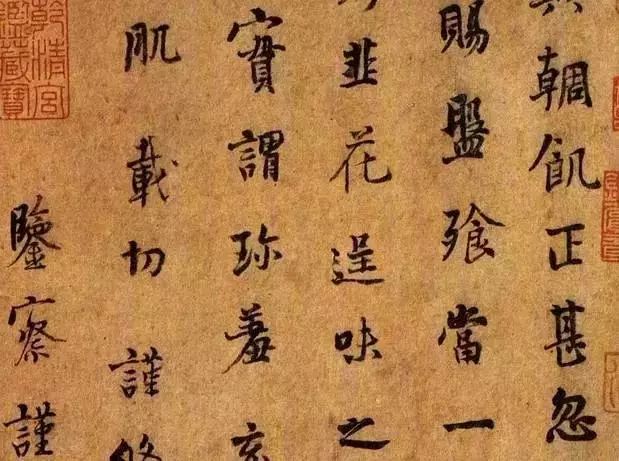 輖飢正甚忽
賜盤飧當一
韭花逞味之
實謂珍羞充
肌載切謹
鑒察謹
乾清宮
鑒藏寶